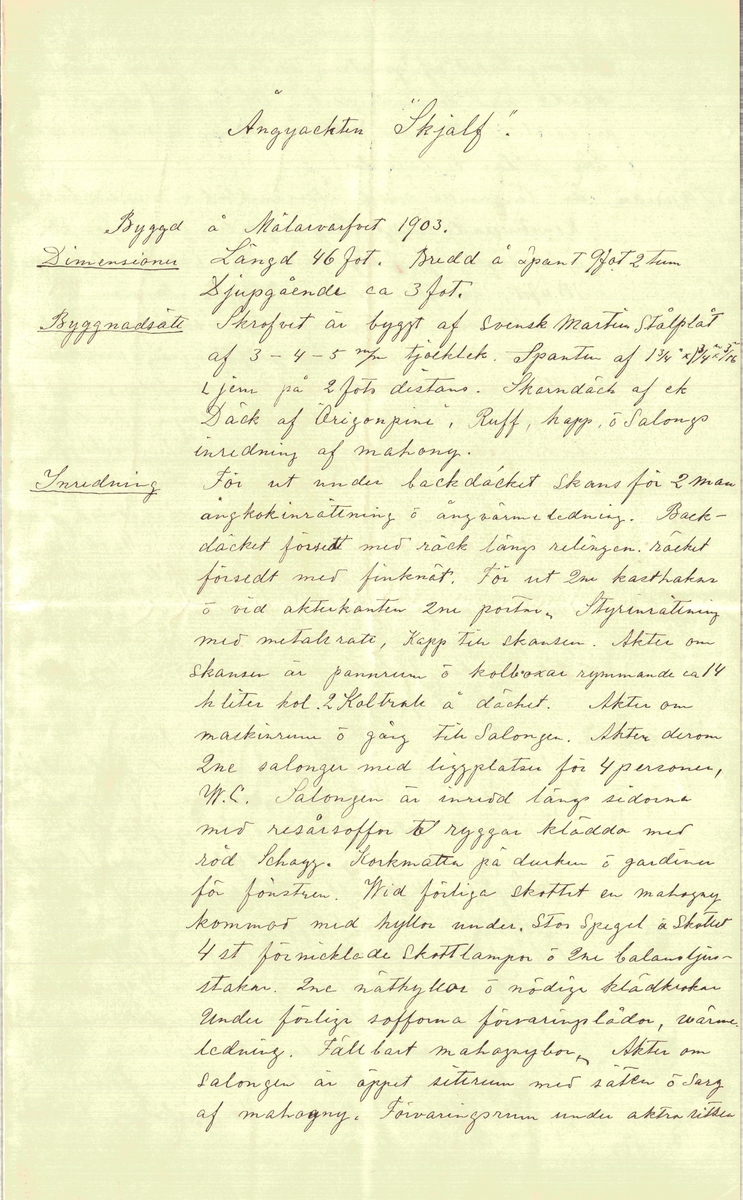 Ångyachten "Skjalf".
Byggd å Mälarvarfvet 1903.
Dimensioner Längd 46 fot. Bredd å spant 9 fot 2 tum
Djupgående ca 3 fot.
Byggnadsätt Skrofvet är byggt af Svensk Martin Stålplåt
af 3 – 4 – 5 m/m tjocklek. Spanten af 1 3/4" x 1 3/4" x 3/16"
L jern på 2 fots distans. Skarndäck af ek
Däck af "Origonpine", Ruff, kapp, ö Salongs
inredning af mahony.
Inredning För ut under backdäcket Skans för 2 man
ångkokinrättning ö ångvärmeledning. Back-
däcket försedt med räck längs relingen. räcket
försedt med finknät. För ut 2ne kasthakar
ö vid akterkanten 2ne portar. Styrinrättning
med metallratt, Kapp till skansen. Akter om
Skansen är pannrum ö kolboxar rymmande ca 14
h liter kol. 2 Koltratt å däcket. Akter om
maskinrum ö gång till Salongen. Akter derom
2ne salonger med liggplatser för 4 personer,
W.C. Salongen är inredd längs sidorna
med resårsoffor ryggar klädda med
röd Schagg. Korkmatta på durken ö gardiner
för fönstren. Wid förliga skottet en mahogny
kommod med hyllor under. Stor Spegel å Skottet
4 st förnicklade Skottlampor ö 2ne balansljus-
stakar. 2ne näthyllor ö nödige klädkrokar
Under förlige sofforna förvaringslådor, wärme-
ledning. Fällbart mahognybord. Akter om
Salongen är öppet sittrum med säten ö Sarg
af mahogny. Förvaringsrum under aktra sitsen